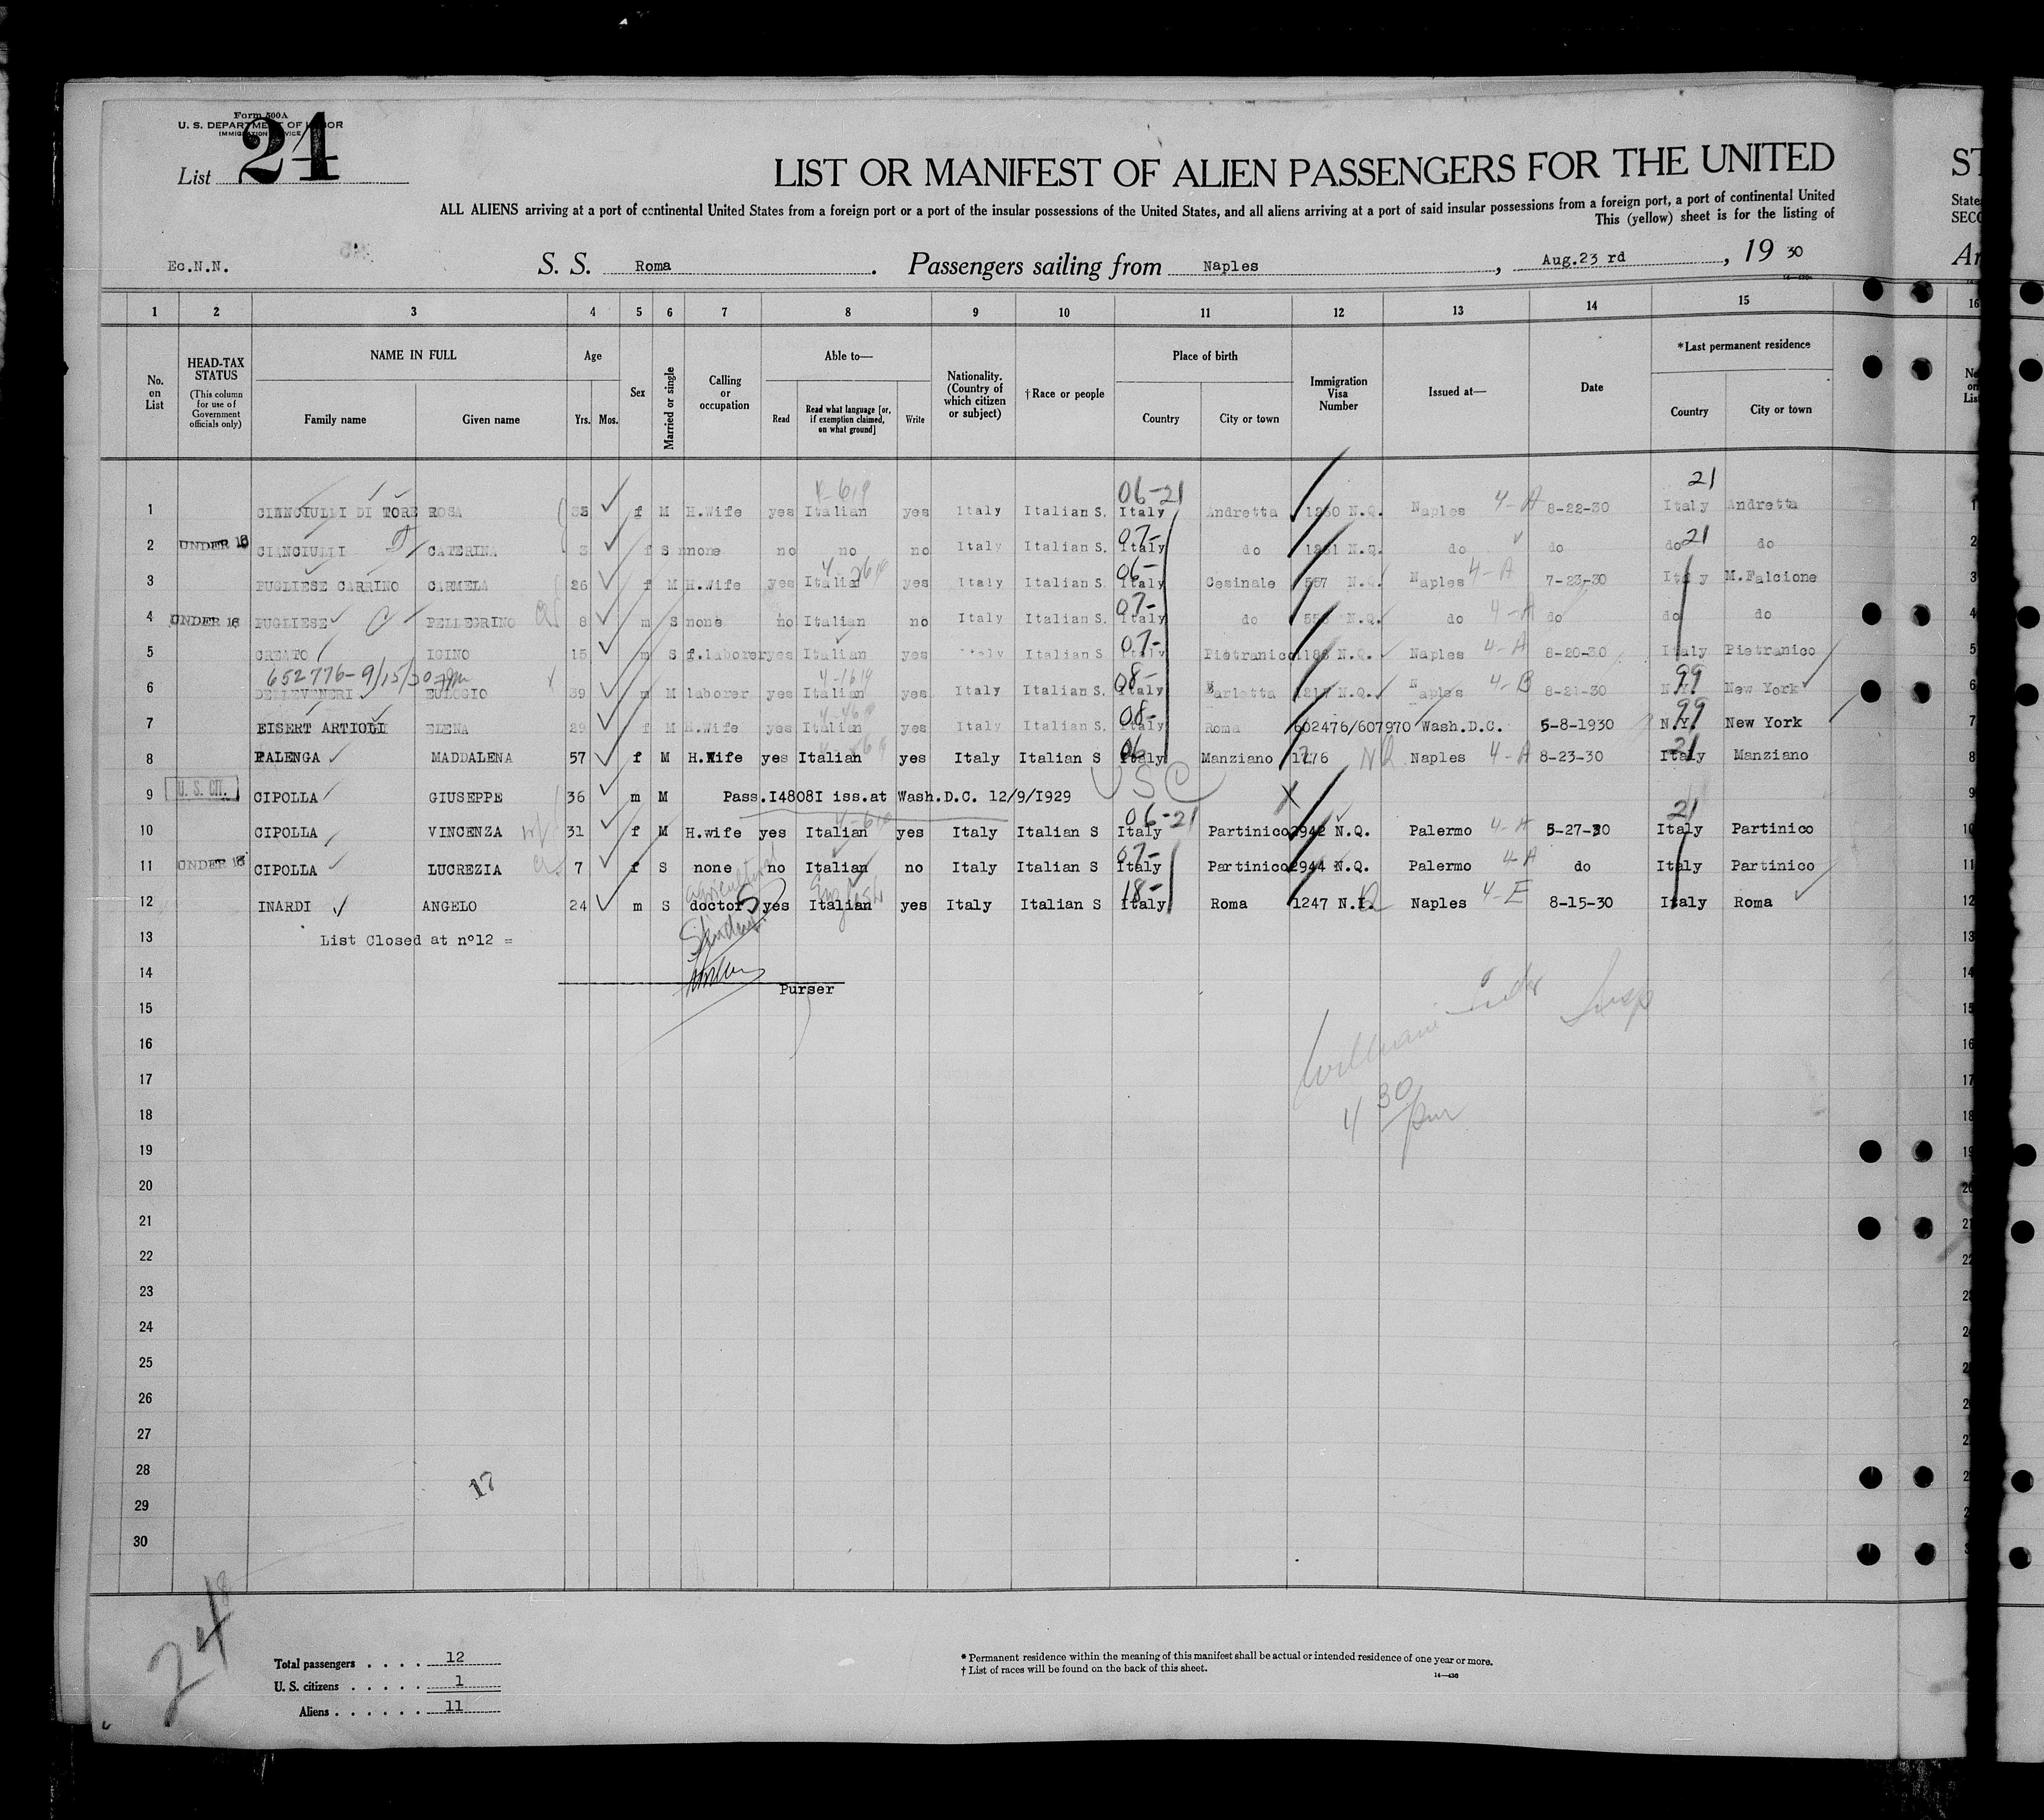 Form 500A
U. S. DEPARTMENT OF LABOR
IMMIGRATION SERVICE
List 24
LIST OR MANIFEST OF ALIEN PASSENGERS FOR THE UNITED
ST
ALL ALIENS arriving at a port of continental United States from a foreign port or a port of the insular possessions of the United States, and all aliens arriving at a port of said insular possessions from a foreign port, a port of continental United
State
This (yellow) sheet is for the listing of
Ec.N.N. S. S. Roma. Passengers sailing from Naples, Aug.23 rd, 19 30
1 2 3 4 5 6 7 8 9 10 11 12 13 14 15 16
No. on List
HEAD-TAX STATUS
(This column for use of Government officials only)
NAME IN FULL
Family name Given name
Age
Yrs. Mos.
Sex
Married or single
Calling or occupation
Able to—
Read
Read what language [or, if exemption claimed, on what ground]
Write
Nationality. (Country of which citizen or subject)
†Race or people
Place of birth
Country City or town
Immigration Visa Number
Issued at—
Date
*Last permanent residence
Country City or town
4-619 06-21 21
1 CIANCIULLI DI TORE ROSA f M H.Wife yes Italian yes Italy Italian S. Italy Andretta N.Q. Naples 4-A 8-22-30 Italy Andretta 1
07- 21
2 UNDER 16 CIANCIULLI CATERINA 3 f S none no no no Italy Italian S. Italy do N.Q. do do do do 2
06-
3 PUGLIESE CARRINO CARMELA 26 f M H.Wife yes Italian yes Italy Italian S. Italy Cesinale 557 N.Q. Naples 4-A 7-23-30 Italy M.Falcione 3
07-
4 UNDER 16 PUGLIESE PELLEGRINO 8 m S none no Italian no Italy Italian S. Italy do N.Q. do 4-A do do do 4
07-
5 CREATO IGINO 15 m S f.laborer yes Italian yes Italy Italian S Italy Pietranico N.Q. Naples 4-A 8-20-30 Italy Pietranico 5
652776-9/15/30 4-1619 08- 99
6 DELLEVENERI EULOGIO 39 m M laborer yes Italian yes Italy Italian S. Italy Barletta N.Q. Naples 4-B 8-21-30 N.Y. New York 6
08- 99
7 EISERT ARTIOLI ELENA 29 f M H.Wife yes Italian yes Italy Italian S. Italy Roma 602476/607970 Wash.D.C. 5-8-1930 N.Y. New York 7
06 21
8 PALENGA MADDALENA 57 f M H.Wife yes Italian yes Italy Italian S Italy Manziano 1276 Naples 4-A 8-23-30 Italy Manziano 8
USC
9 U. S. CIT. CIPOLLA GIUSEPPE 36 m M Pass.I4808I iss.at Wash.D.C. 12/9/I929 9
4-619 06-21 21
10 CIPOLLA VINCENZA 31 f M H.wife yes Italian yes Italy Italian S Italy Partinico 2942 N.Q. Palermo 4-A 5-27-30 Italy Partinico 10
07-
11 UNDER 16 CIPOLLA LUCREZIA 7 f S none no Italian no Italy Italian S Italy Partinico 2944 N.Q. Palermo 4-A do Italy Partinico 11
agricultural English 18-
12 INARDI ANGELO 24 m S doctor yes Italian yes Italy Italian S Italy Roma 1247 Naples 4-E 8-15-30 Italy Roma 12
Student
13 List Closed at n°12 = 13
14 14
Purser
Insp
15 15
16 16
17 17
4 30 pm
18 18
19
20
21
22
23
24
25
26
27
28
17
29
30
24
Total passengers . . . . 12
U. S. citizens . . . . . 1
Aliens . . . . . . 11
* Permanent residence within the meaning of this manifest shall be actual or intended residence of one year or more.
† List of races will be found on the back of this sheet.
14—436